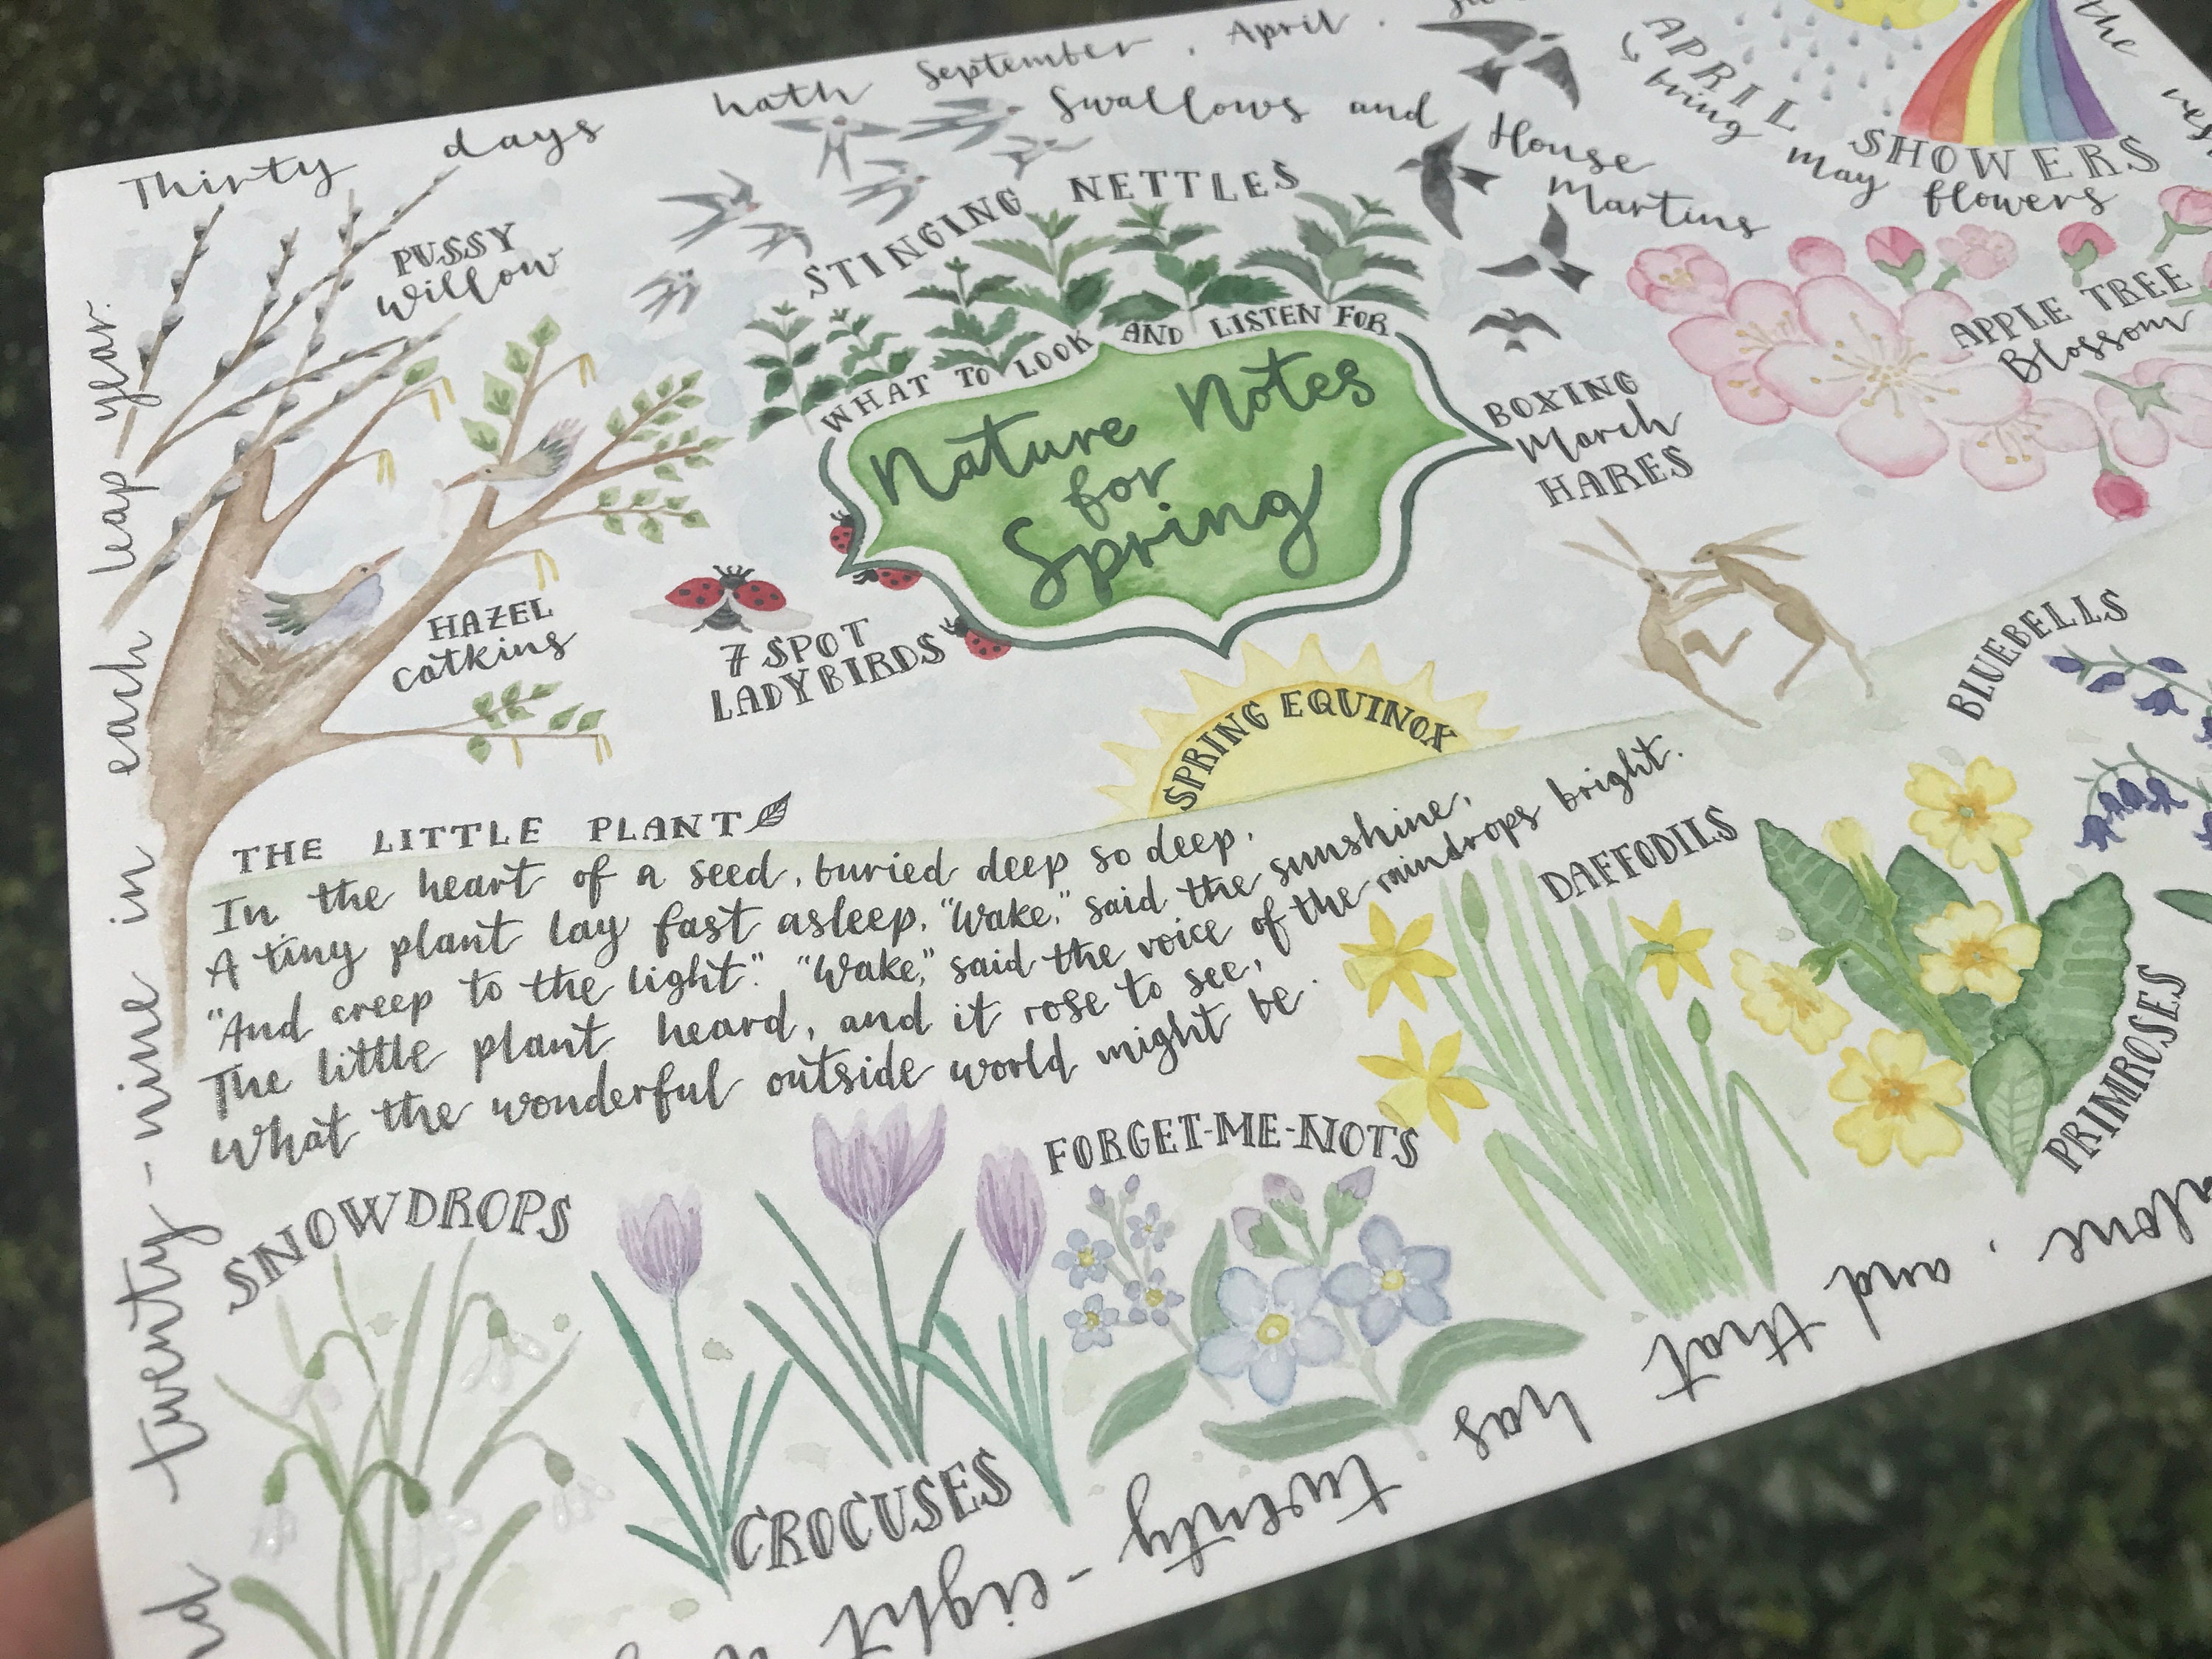 Thirty days hath September, April,
Swallows and
House
Martins
APRIL SHOWERS
bring may flowers
the
PUSSY
Willow
STINGING NETTLES
WHAT TO LOOK AND LISTEN FOR
Nature Notes
for
Spring
APPLE TREE
Blossom
BOXING
March
HARES
HAZEL
catkins
7 SPOT
LADYBIRDS
SPRING EQUINOX
BLUEBELLS
THE LITTLE PLANT
In the heart of a seed, buried deep so deep,
A tiny plant lay fast asleep. "Wake," said the sunshine,
"And creep to the light." "Wake," said the voice of the raindrops bright.
The little plant heard, and it rose to see,
What the wonderful outside world might be.
DAFFODILS
PRIMROSES
SNOWDROPS
FORGET-ME-NOTS
CROCUSES
alone, and that
has twenty-eight
twenty-nine in each leap year.